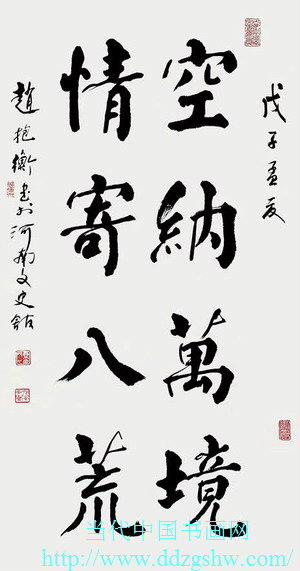 戊子孟夏
空納萬境
情寄八荒
趙抱衡書於河南文史館
当代中国书画网
http://www.ddzgshw.com/